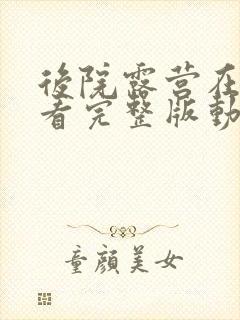 後院露营在
看完整版動
童顔美女